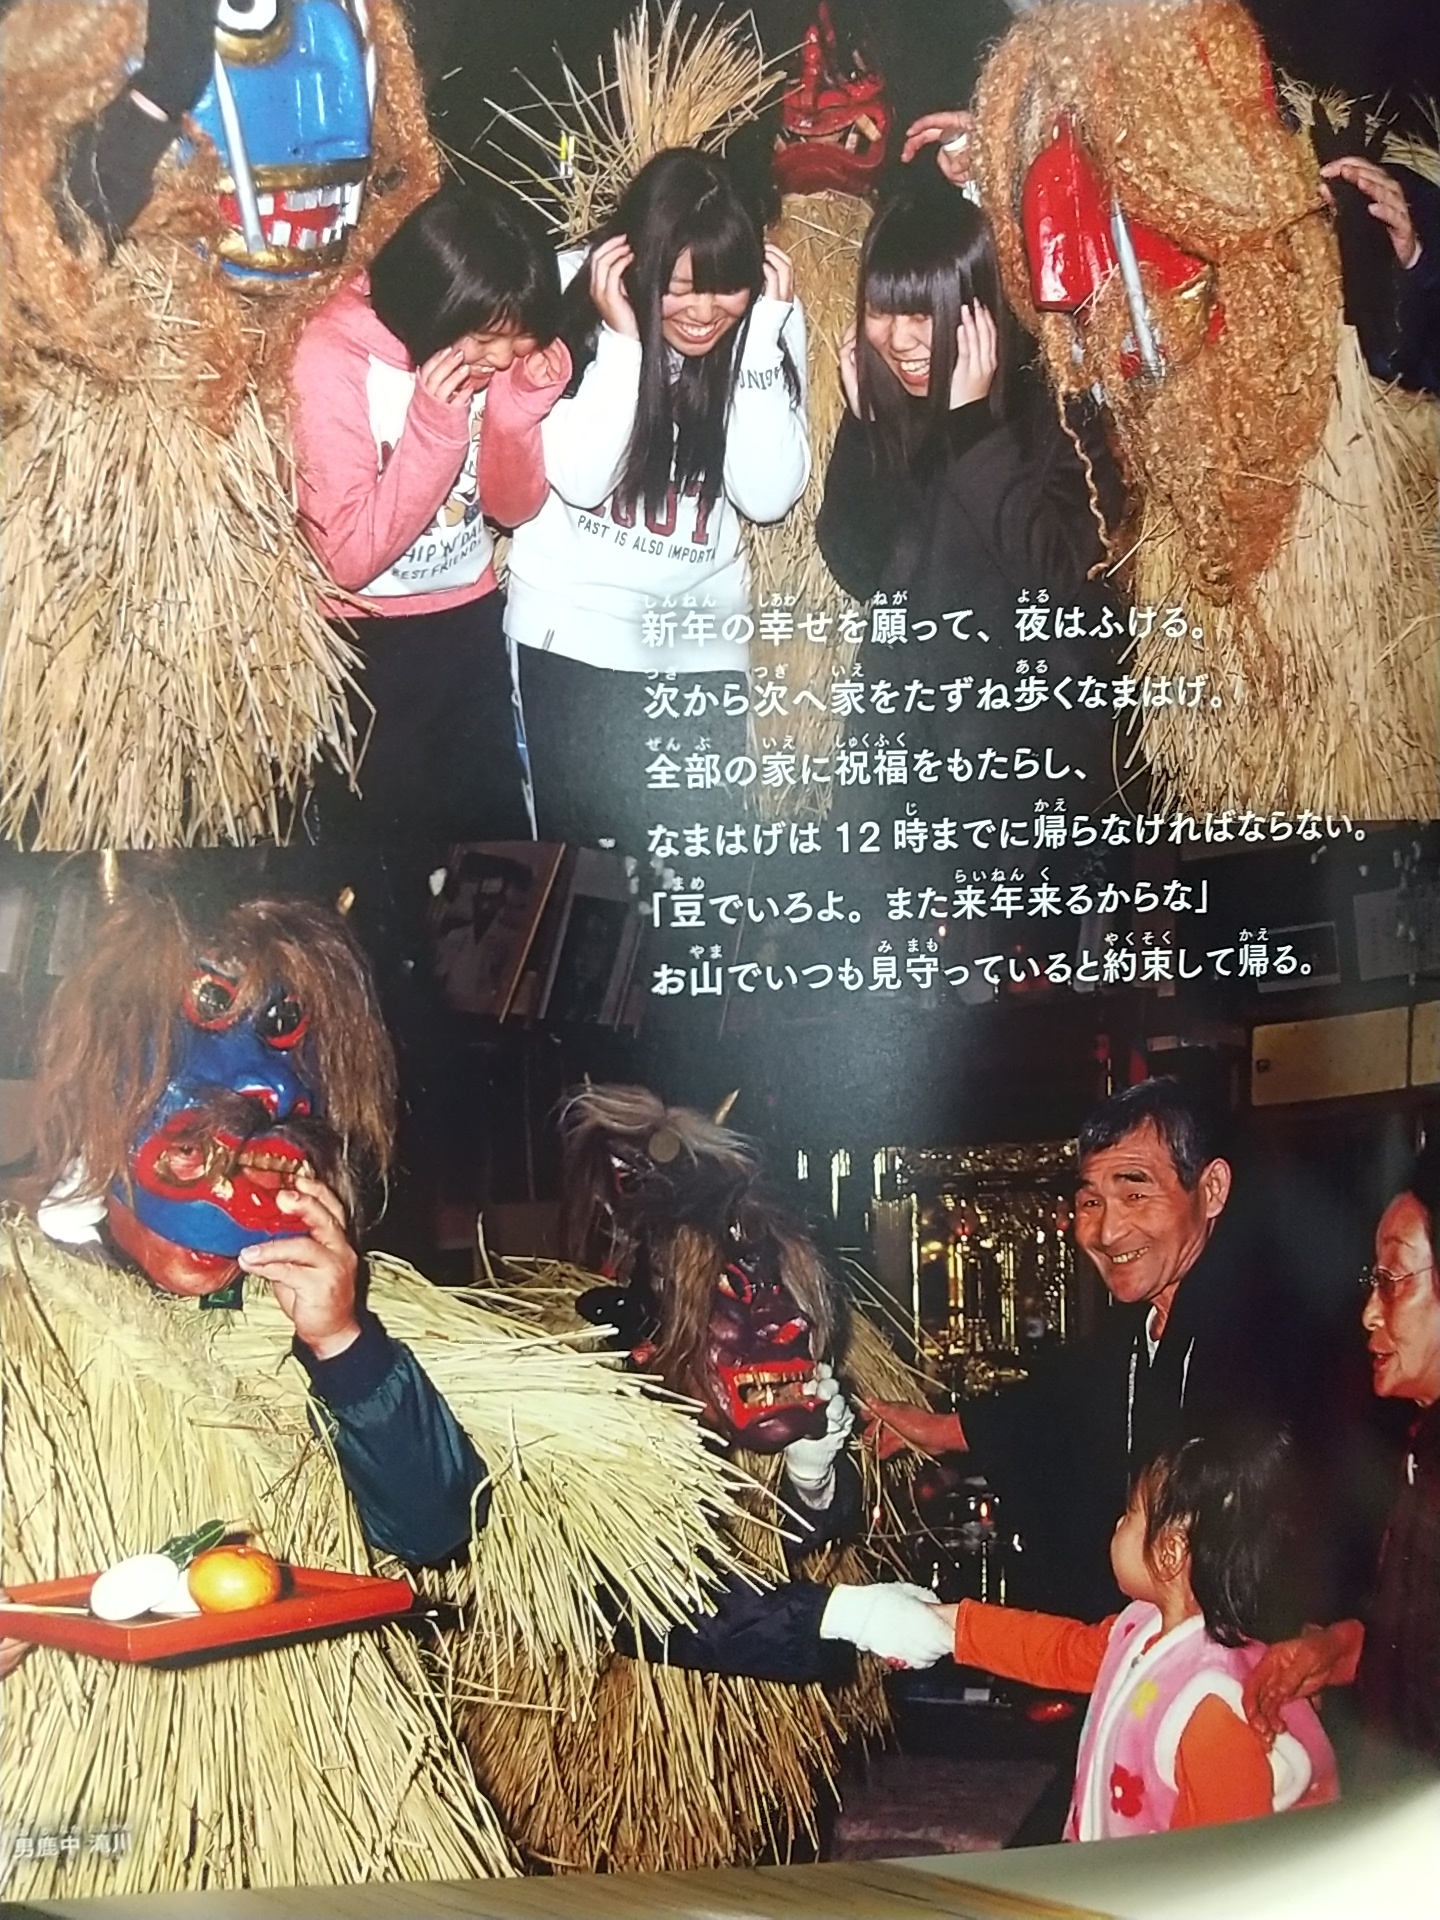 PAST IS ALSO IMPORTA
BEST FRIEND
新年の幸せを願って、夜はふける。
次から次へ家をたずね歩くなまはげ。
全部の家に祝福をもたらし、
なまはげは 12 時までに帰らなければならない。
「豆でいろよ。また来年来るからな」
お山でいつも見守っていると約束して帰る。
男鹿中 滝川